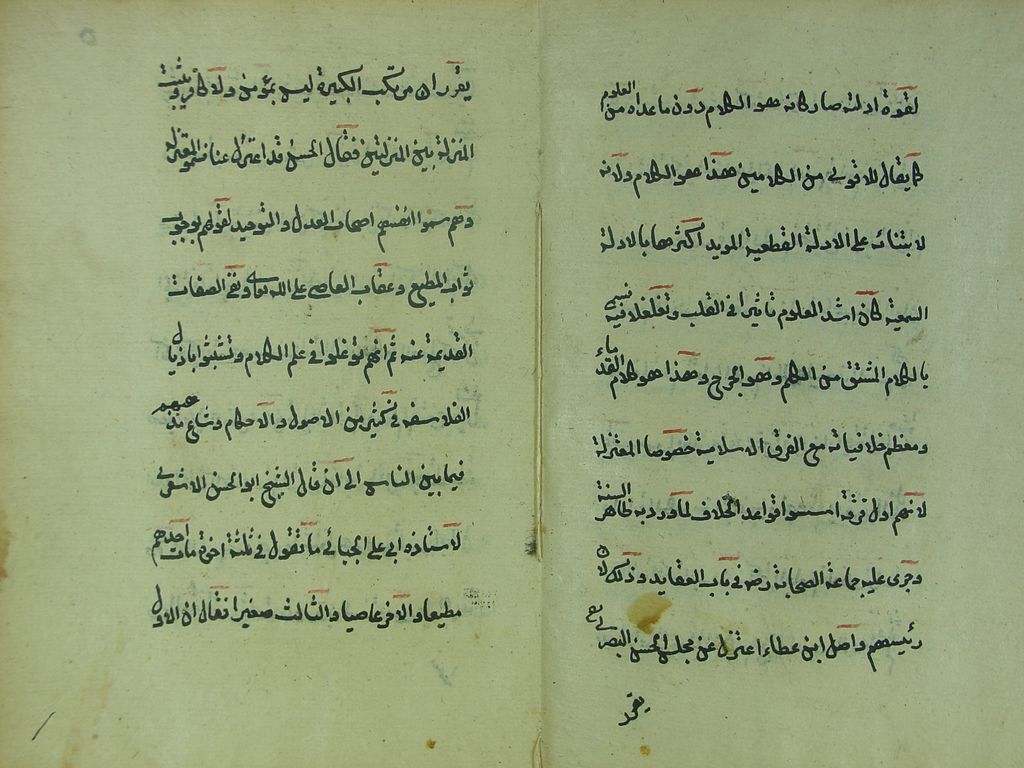 لقوة ادلته صار كانه هو الكلام دون ما عداه من العلوم
كما يقال للاقوى من الكلامين هذا هو الكلام ولانه
لابتنائه على الادلة القطعية المويد اكثرها بالادلة
السمعية كان اشد العلوم تاثيرا فى القلب وتغلغلا فيه فسمى
بالكلام المشتق من الكلم وهو الجرح وهذا هو كلام القدماء
ومعظم خلافياته مع الفرق الاسلامية خصوصا المعتزلة
لانهم اول فرقة اسسوا قواعد الخلاف لما ورد به ظاهر السنة
وجرى عليه جماعة الصحابة رضه فى باب العقايد وذلك لان
رئيسهم واصل ابن عطاء اعتزل عن مجلس الحسن البصرى
يقرر
يقرر ان مرتكب الكبيرة ليس بمؤمن ولا كافر ويثبت
المنزلة بين المنزلتين فقال الحسن قد اعتزل عنا فسموا المعتزلة
وهم سموا انفسهم اصحاب العدل والتوحيد لقولهم بوجوب
ثواب المطيع وعقاب العاصى على الله تعالى ونفى الصفات
القديمة عنه ثم انهم توغلوا فى علم الكلام وتشبثوا باذيال
الفلاسفه فى كثير من الاصول والاحكام وشاع مذهبهم
فيما بين الناس الى ان قال الشيخ ابو الحسن الاشعرى
لاستاذه ابى على الجبائى ما تقول فى ثلثة اخوة مات احدهم
مطيعا والاخر عاصيا والثالث صغيرا فقال ان الاول